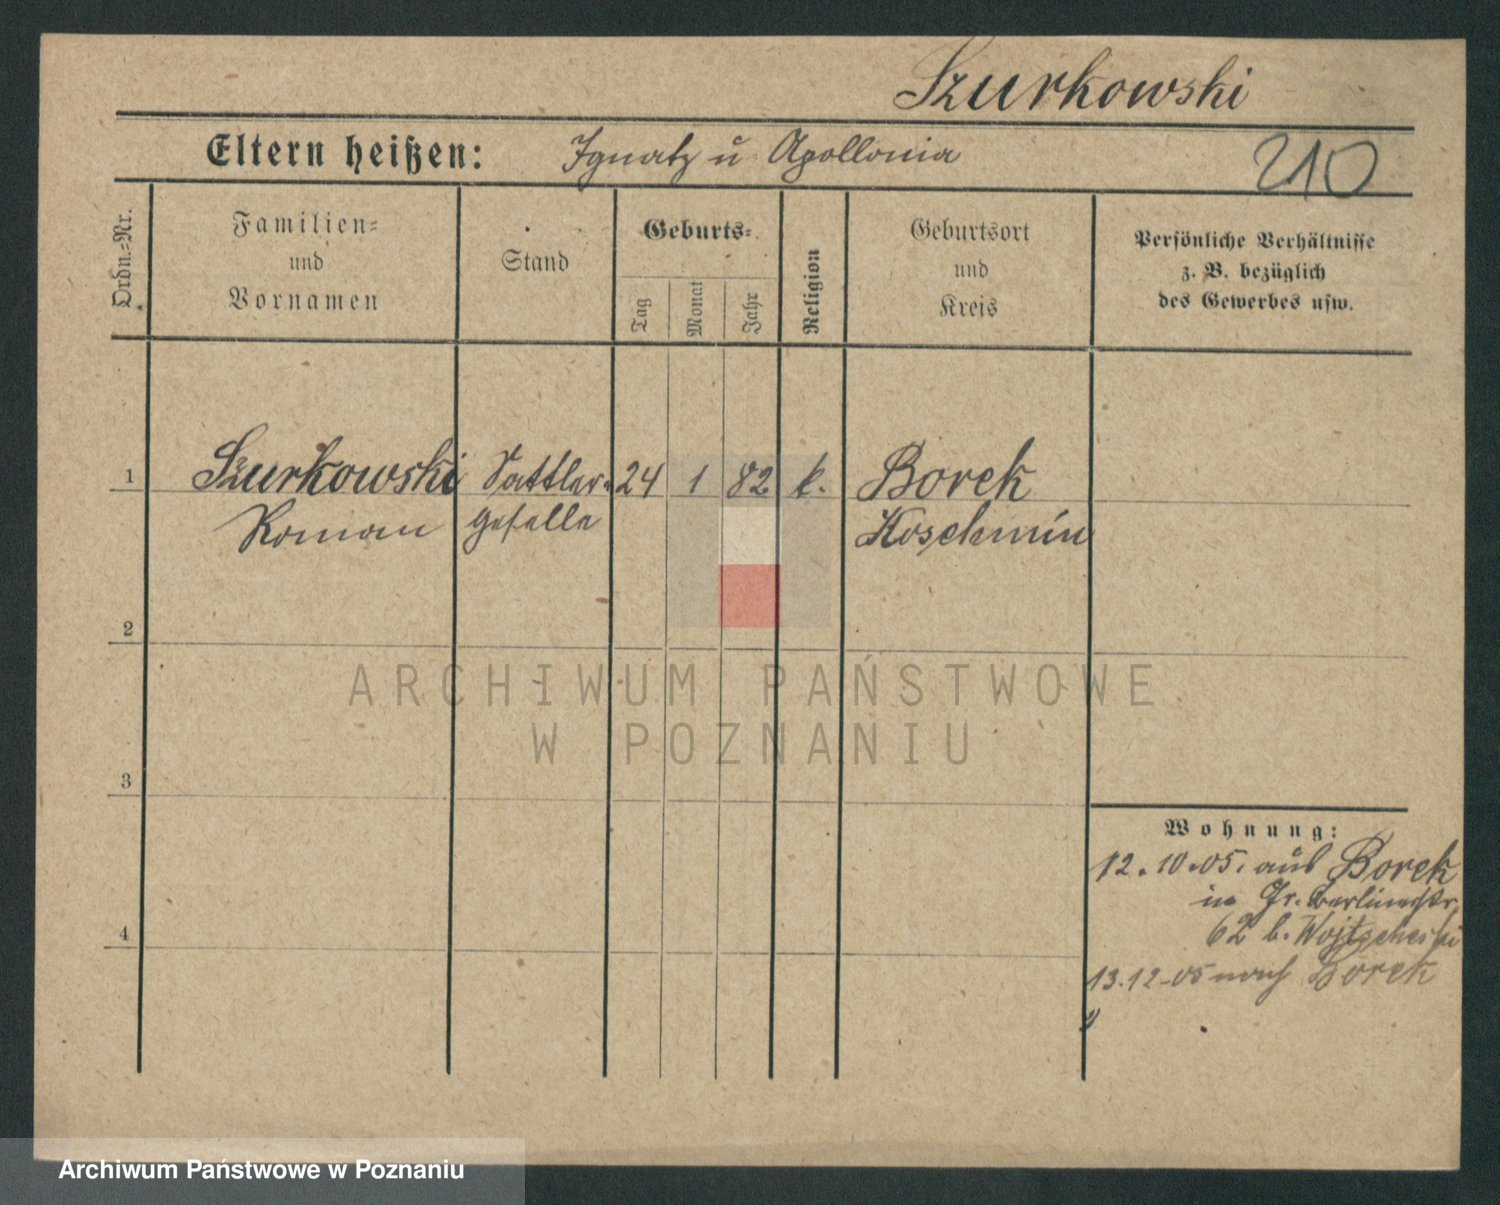 Szurkowski
Eltern heißen: Ignatz u Apollonia
210
Ordn.-Nr.
Familien-
und
Vornamen
Stand
Geburts-
Tag
Monat
Jahr
Religion
Geburtsort
und
Kreis
Persönliche Verhältnisse
z. B. bezüglich
des Gewerbes usw.
1 Szurkowski Sattler- 24 1 82 k. Borek
Roman geselle Koschmin
2
ARCHIWUM PAŃSTWOWE
W POZNANIU
3
Wohnung:
12.10.05. aus Borek
in Gr. Berlinerstr.
62 b.
4
13.12-05 nach Borek
Archiwum Państwowe w Poznaniu